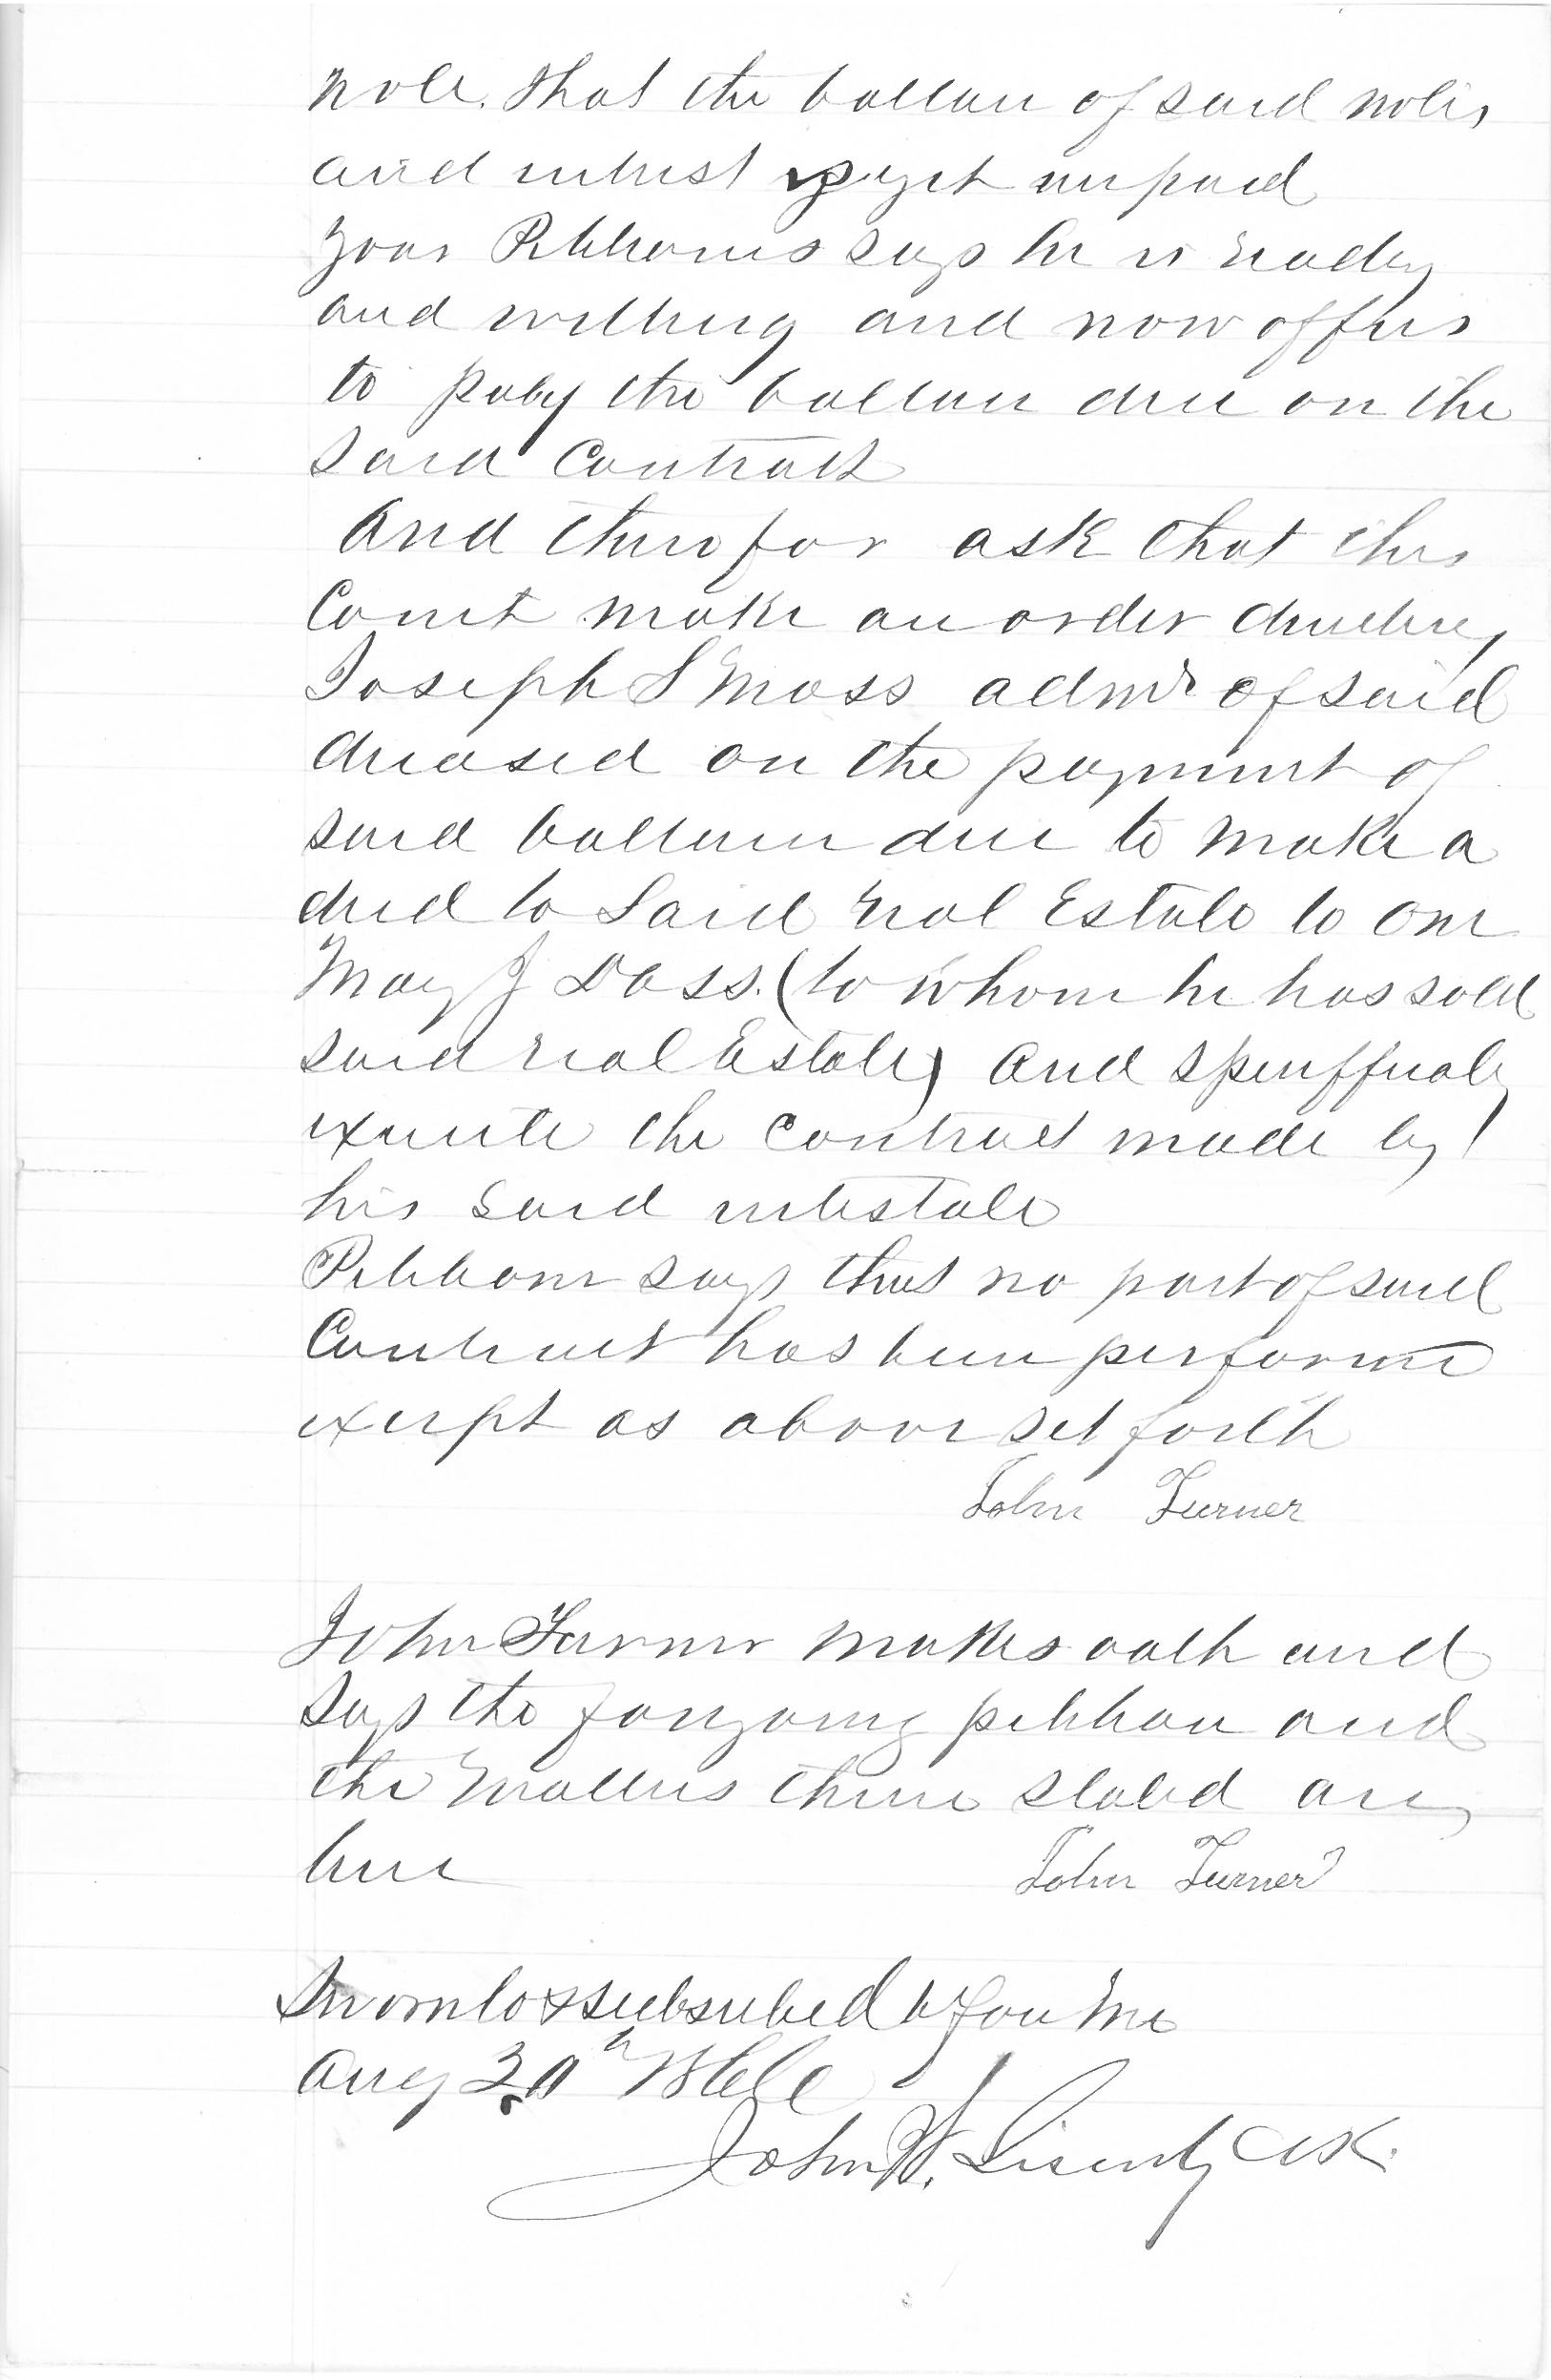 note. That the ballance of said notes
and intrest is yet unpaid
Your Petitioner says he is ready
and willing and now offers
to pay the ballance due on the
said Contract
And therefor ask that this
Court make an order directing
Joseph S Moss admr of said
deceased on the payment of
said ballance due to make a
deed to Said real Estate to one
Mary J Doss. (to whom he has sold
said real Estate) and speciffically
execute the Contract made by
his said intestate
Petitioner says that no part of said
Contract has been performed
except as above set forth
John Turner
John Turner makes oath and
says the foregoing petition and
the matters therein stated are
true
John Turner
Sworn to & subscribed before me
Aug 30th
John W. Clk.